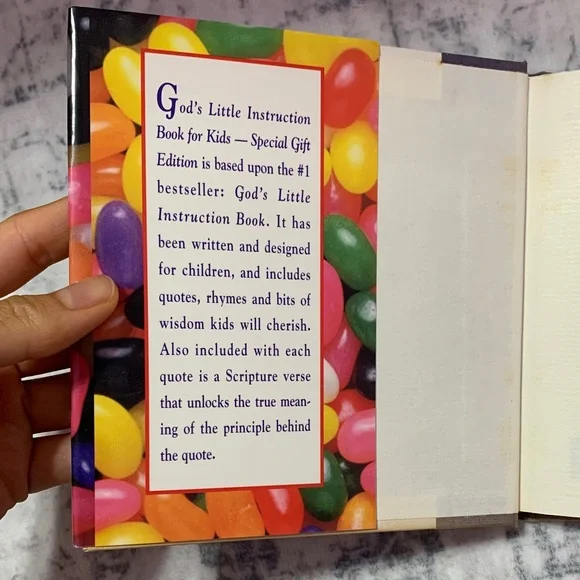 God's Little Instruction
Book for Kids — Special Gift
Edition is based upon the #1
bestseller: God's Little
Instruction Book. It has
been written and designed
for children, and includes
quotes, rhymes and bits of
wisdom kids will cherish.
Also included with each
quote is a Scripture verse
that unlocks the true mean-
ing of the principle behind
the quote.